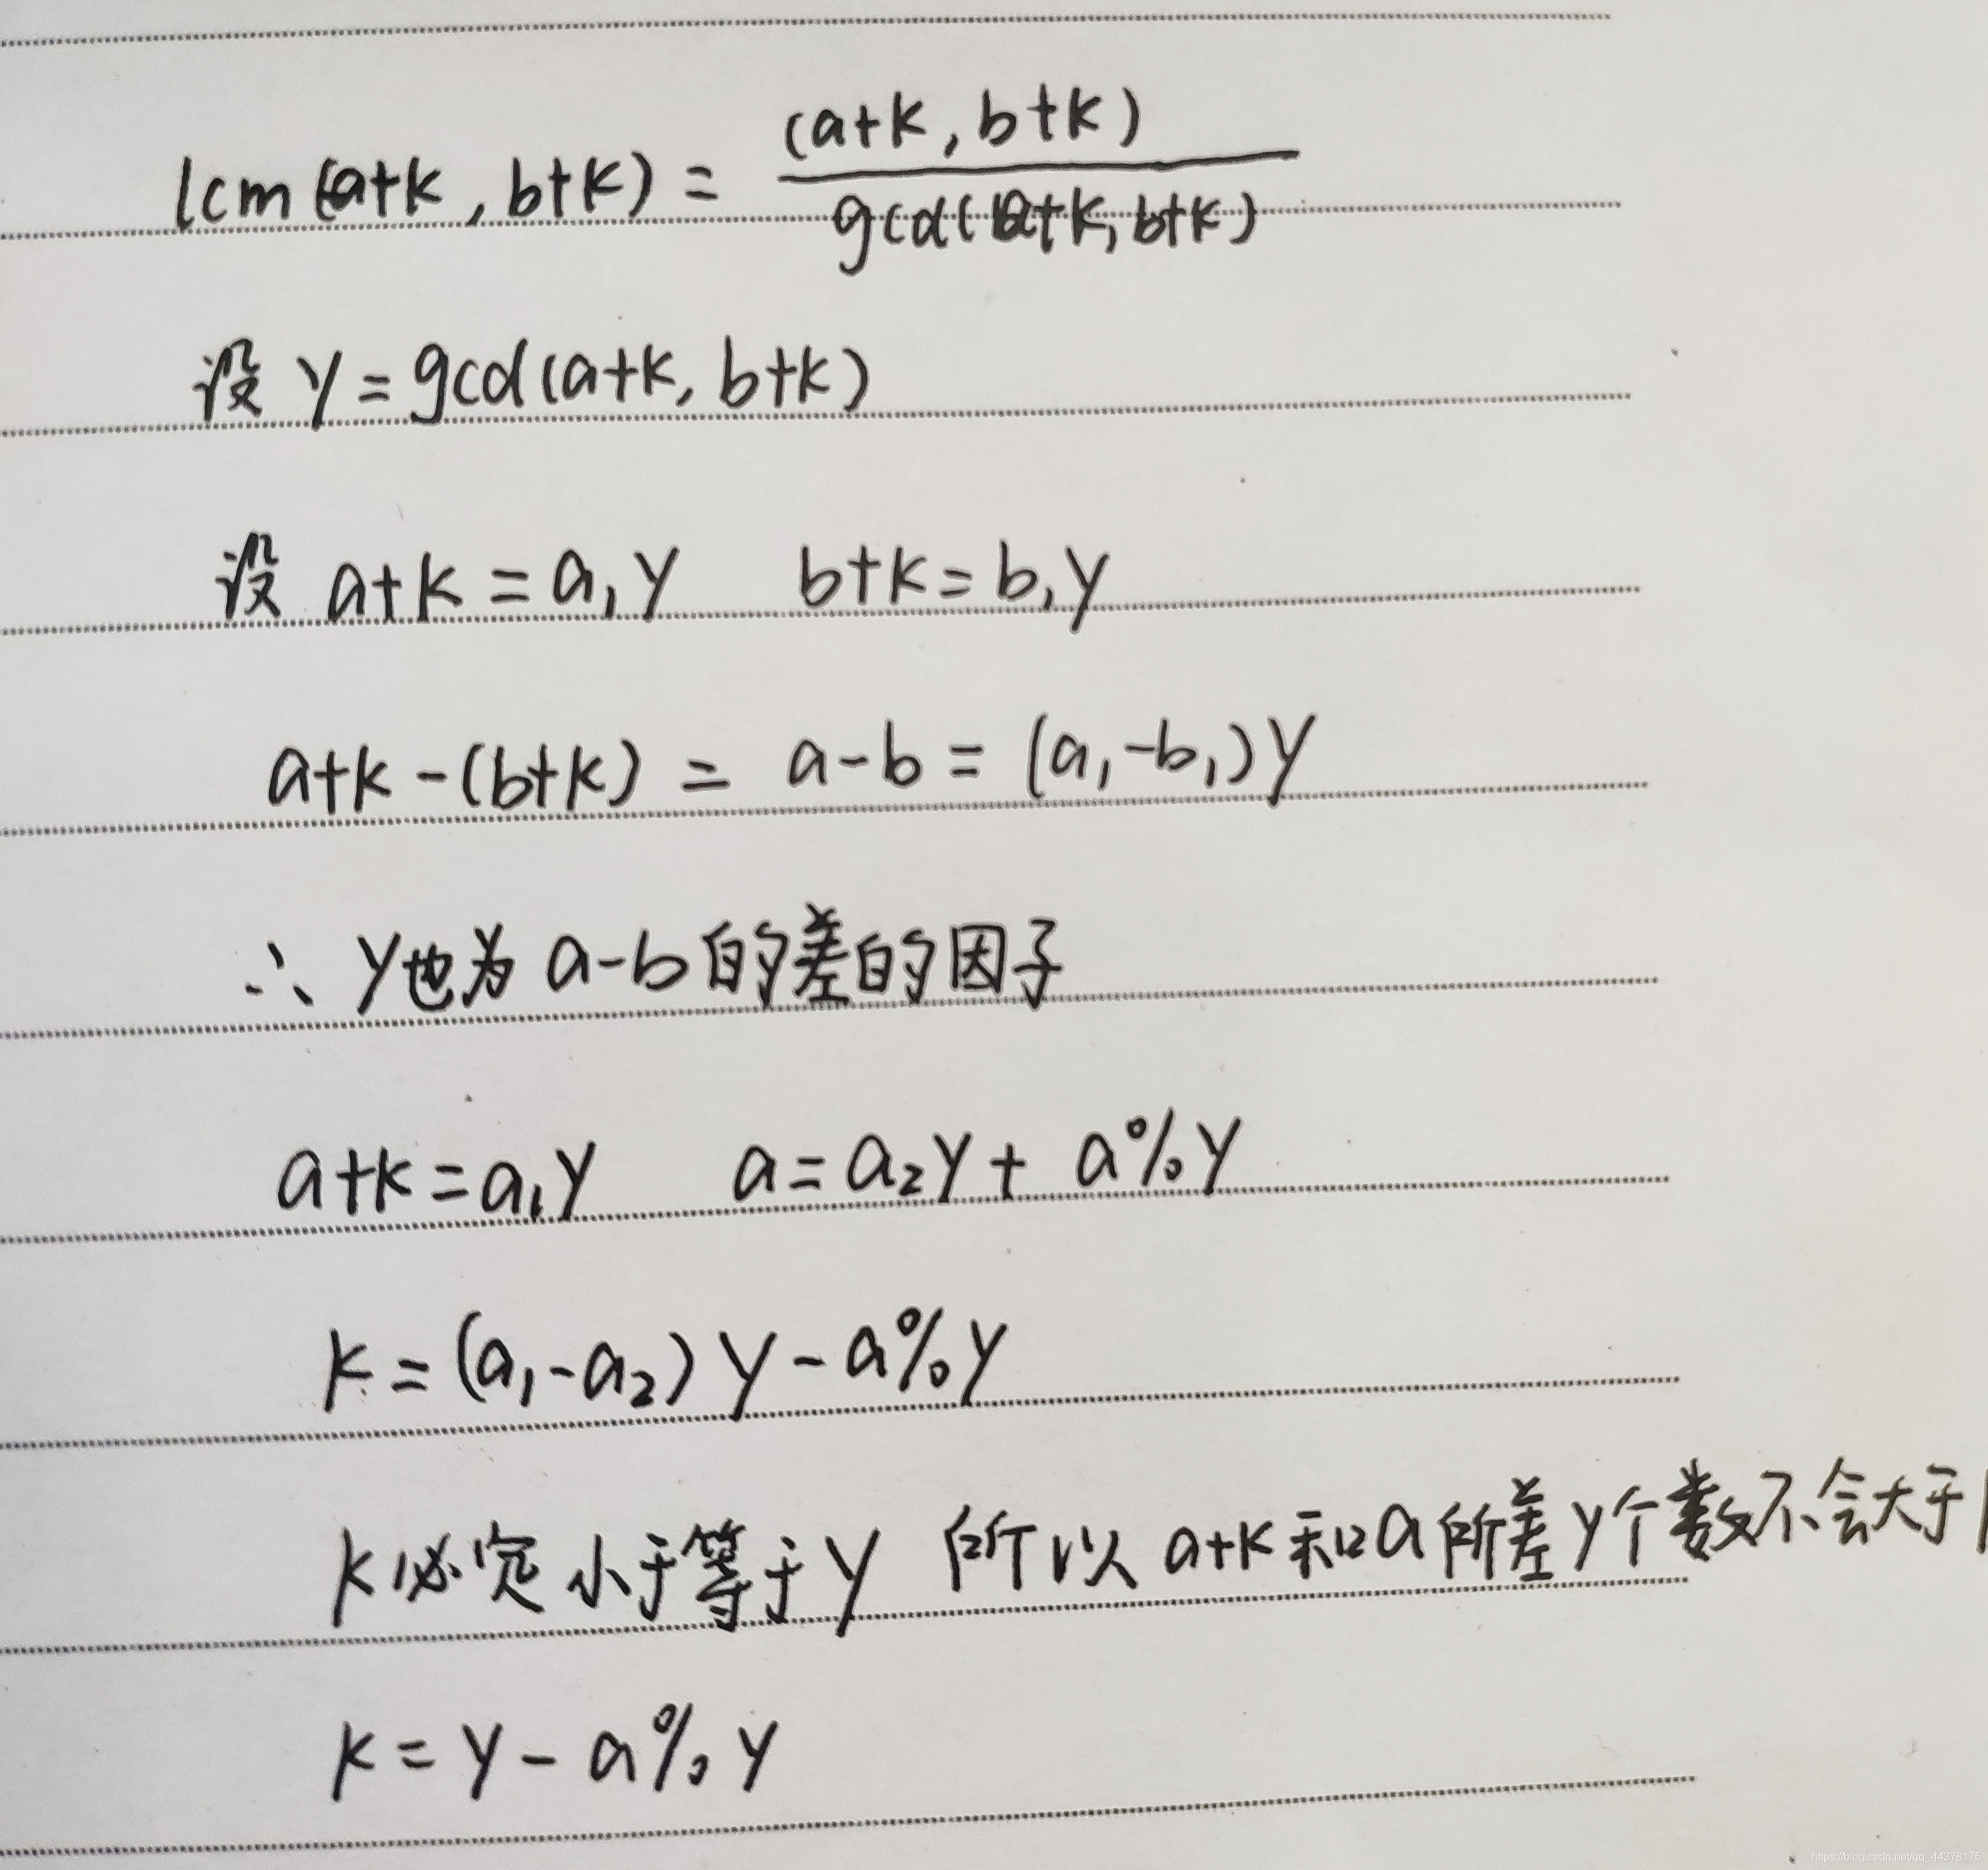 lcm(a+k, b+k) = (a+k, b+k) / gcd(a+k, b+k)
设 y = gcd(a+k, b+k)
设 a+k = a₁y b+k = b₁y
a+k-(b+k) = a-b = (a₁-b₁)y
∴ y也为 a-b的差的因子
a+k = a₁y a = a₂y + a%y
k = (a₁-a₂)y - a%y
k必定小于等于y 所以 a+k和a所差y个数不会大于
k = y - a%y
https://blog.csdn.net/qq_44378175